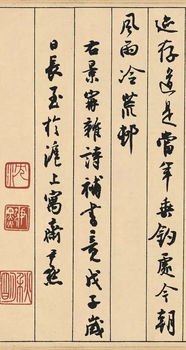 延存道是當年垂釣處今朝
風雨冷荒邨
右景寧雜詩補書竟戊子歲
日長至於滬上寓齋尹默
沈